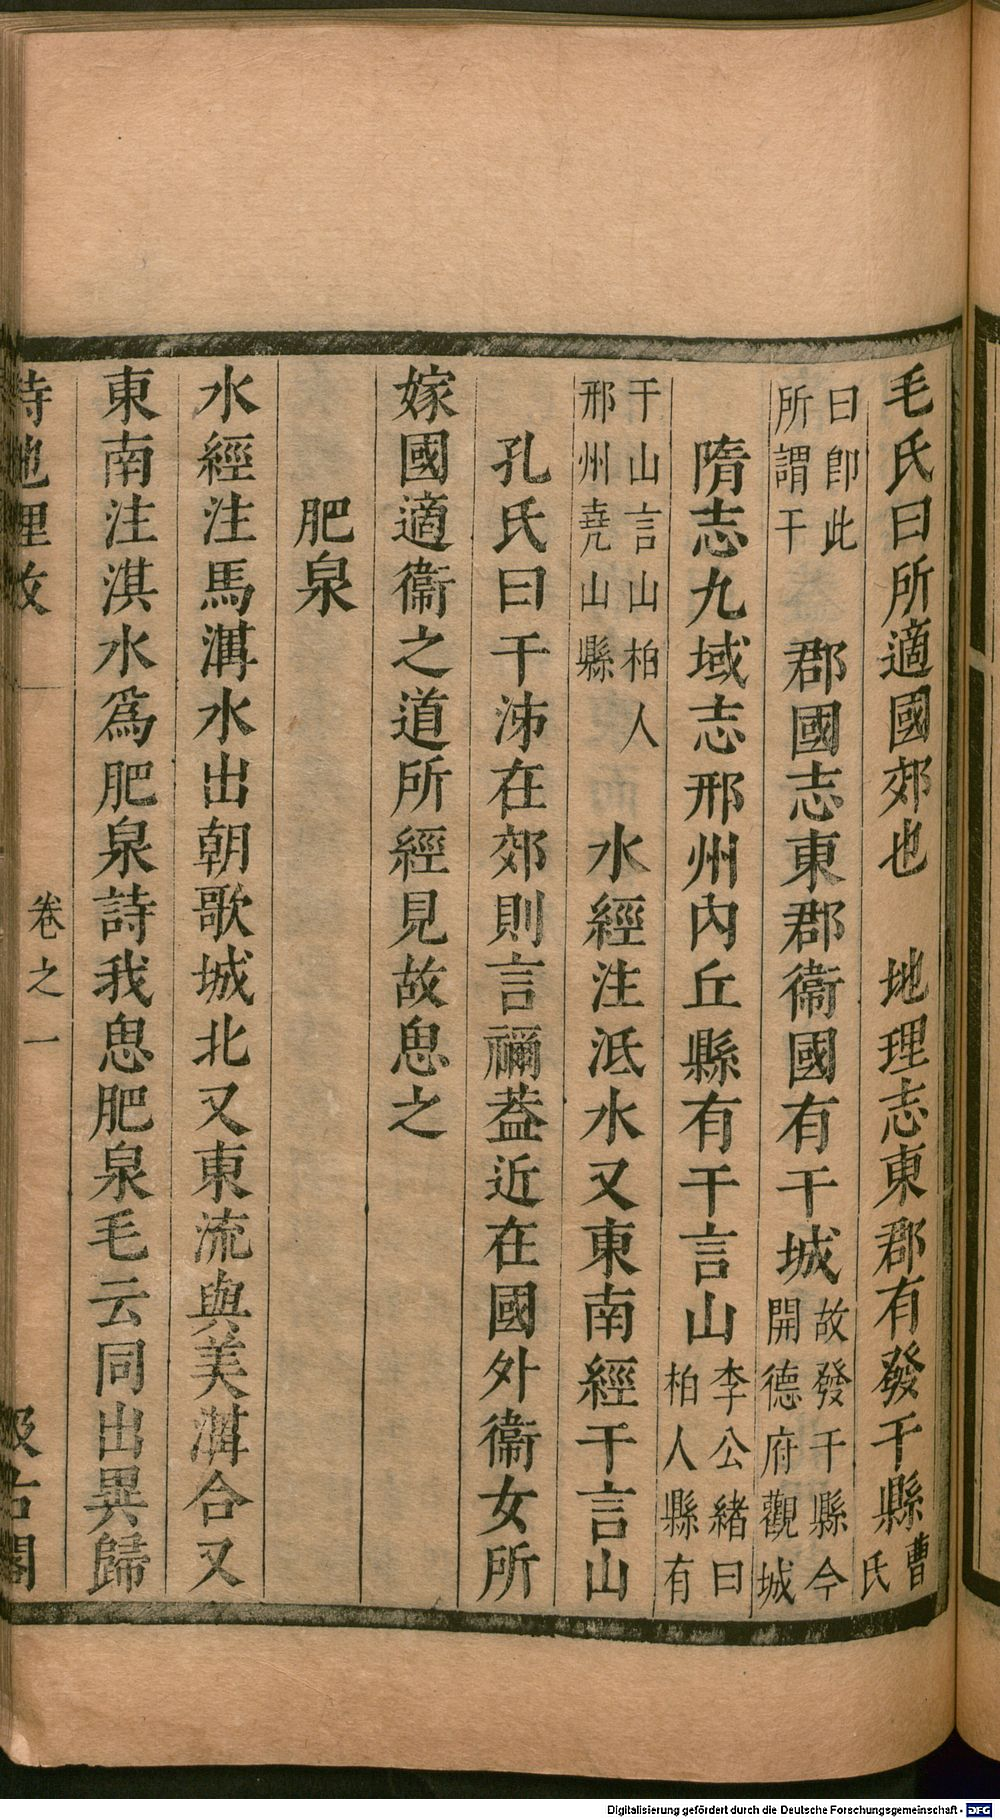 毛氏曰所適國郊也　地理志東郡有發干縣曹氏
曰卽此所謂干　郡國志東郡衞國有干城故發干縣今開德府觀城
隋志九域志邢州內丘縣有干言山李公緒曰柏人縣有
干山言山柏人邢州堯山縣　水經注泜水又東南經干言山
孔氏曰干泲在郊則言禰葢近在國外衞女所
嫁國適衞之道所經見故思之
肥泉
水經注馬溝水出朝歌城北又東流與美溝合又
東南注淇水爲肥泉詩我思肥泉毛云同出異歸
詩地理攷
卷之一
汲古閣
Digitalisierung gefördert durch die Deutsche Forschungsgemeinschaft - DFG